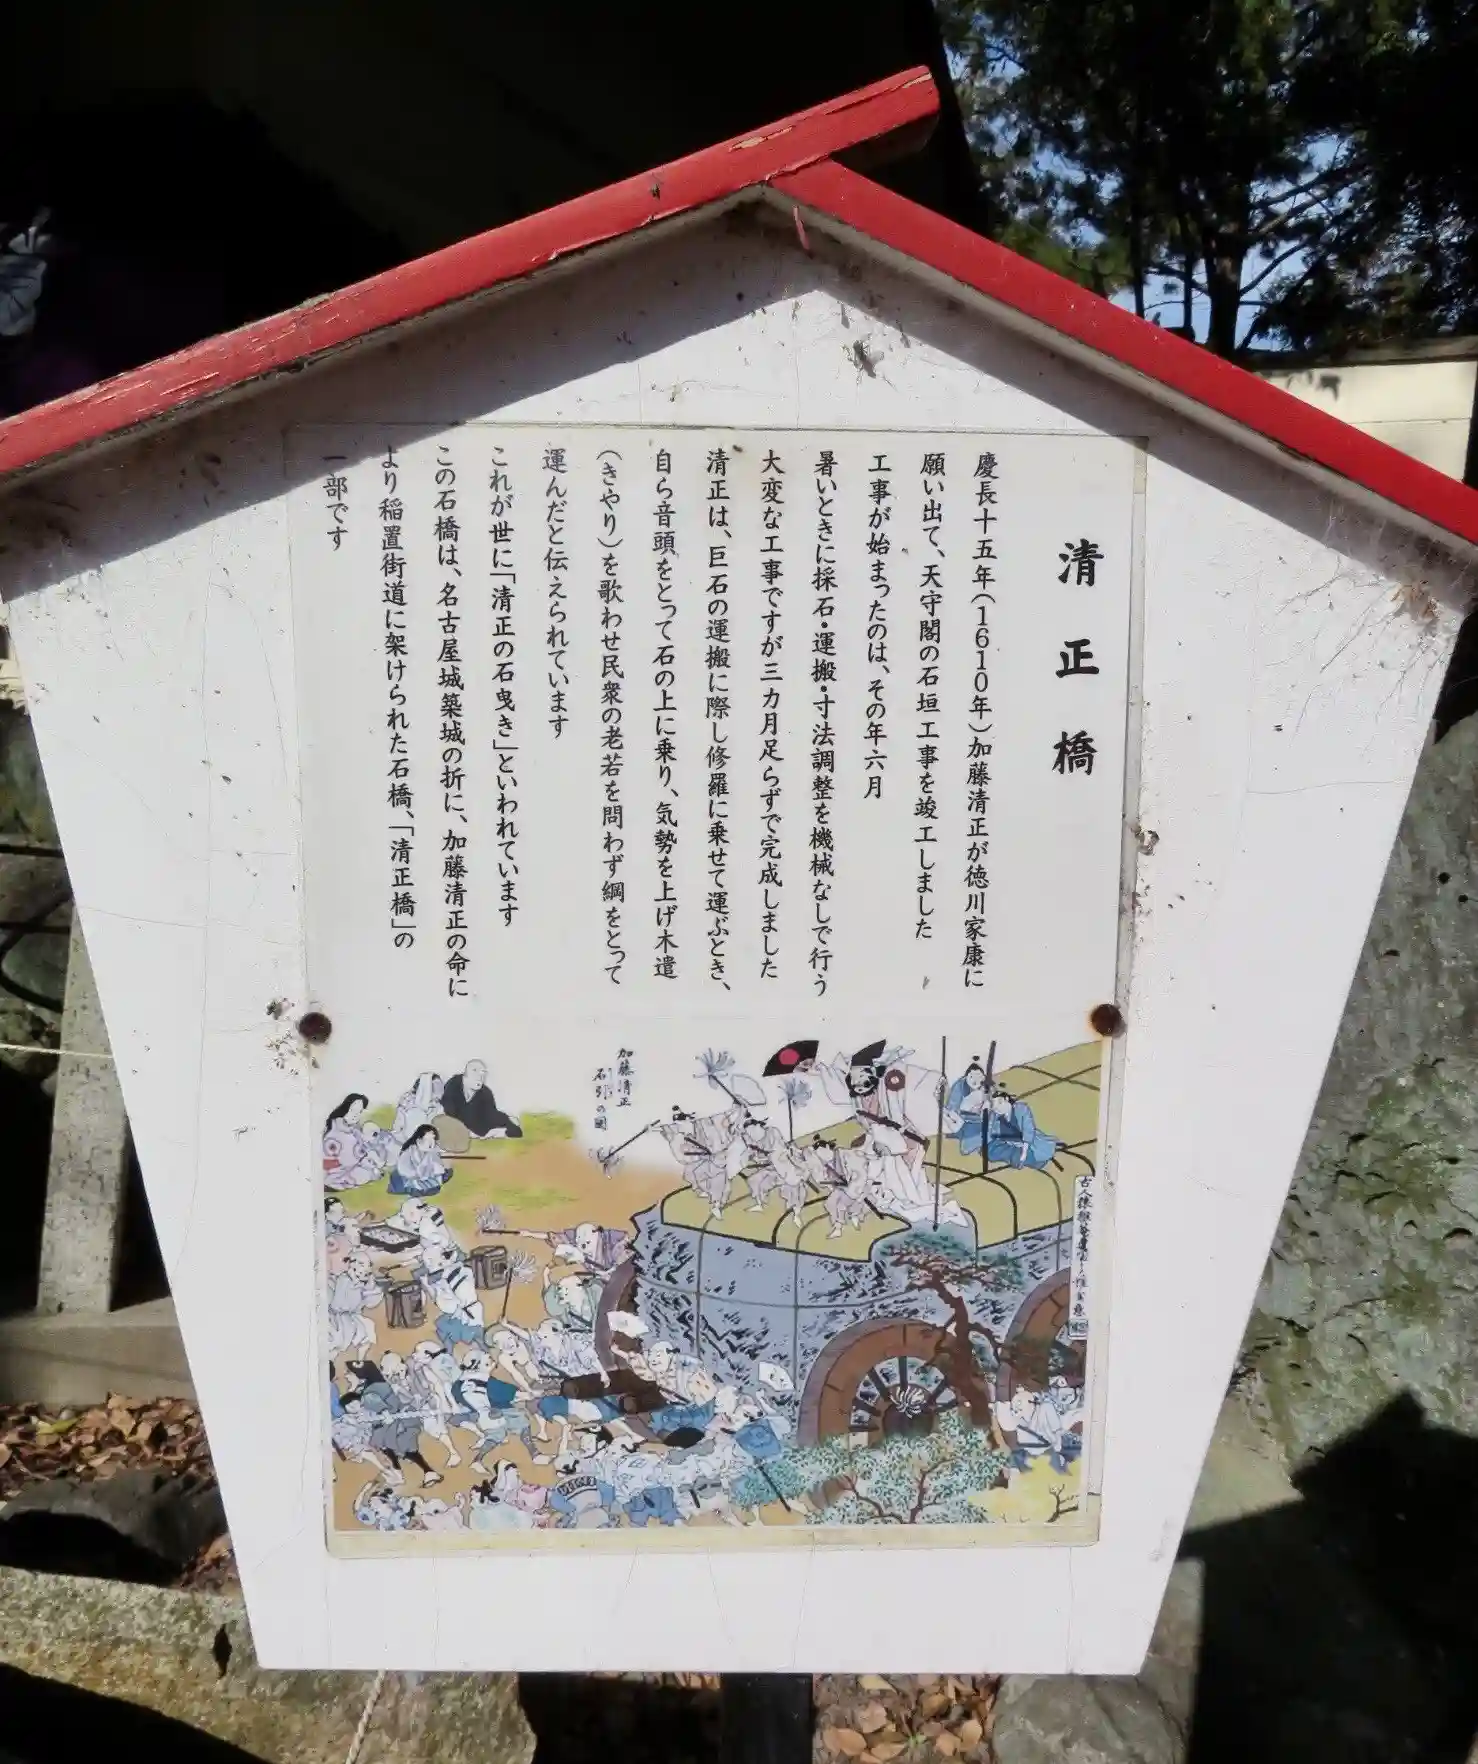 清正橋
慶長十五年(1610年)加藤清正が徳川家康に
願い出て、天守閣の石垣工事を竣工しました
工事が始まったのは、その年六月
暑いときに採石・運搬・寸法調整を機械なしで行う
大変な工事ですが三カ月足らずで完成しました
清正は、巨石の運搬に際し修羅に乗せて運ぶとき、
自ら音頭をとって石の上に乗り、気勢を上げ木遣
(きやり)を歌わせ民衆の老若を問わず綱をとって
運んだと伝えられています
これが世に「清正の石曳き」といわれています
この石橋は、名古屋城築城の折に、加藤清正の命に
より稲置街道に架けられた石橋、「清正橋」の
一部です
加藤清正
石引の図